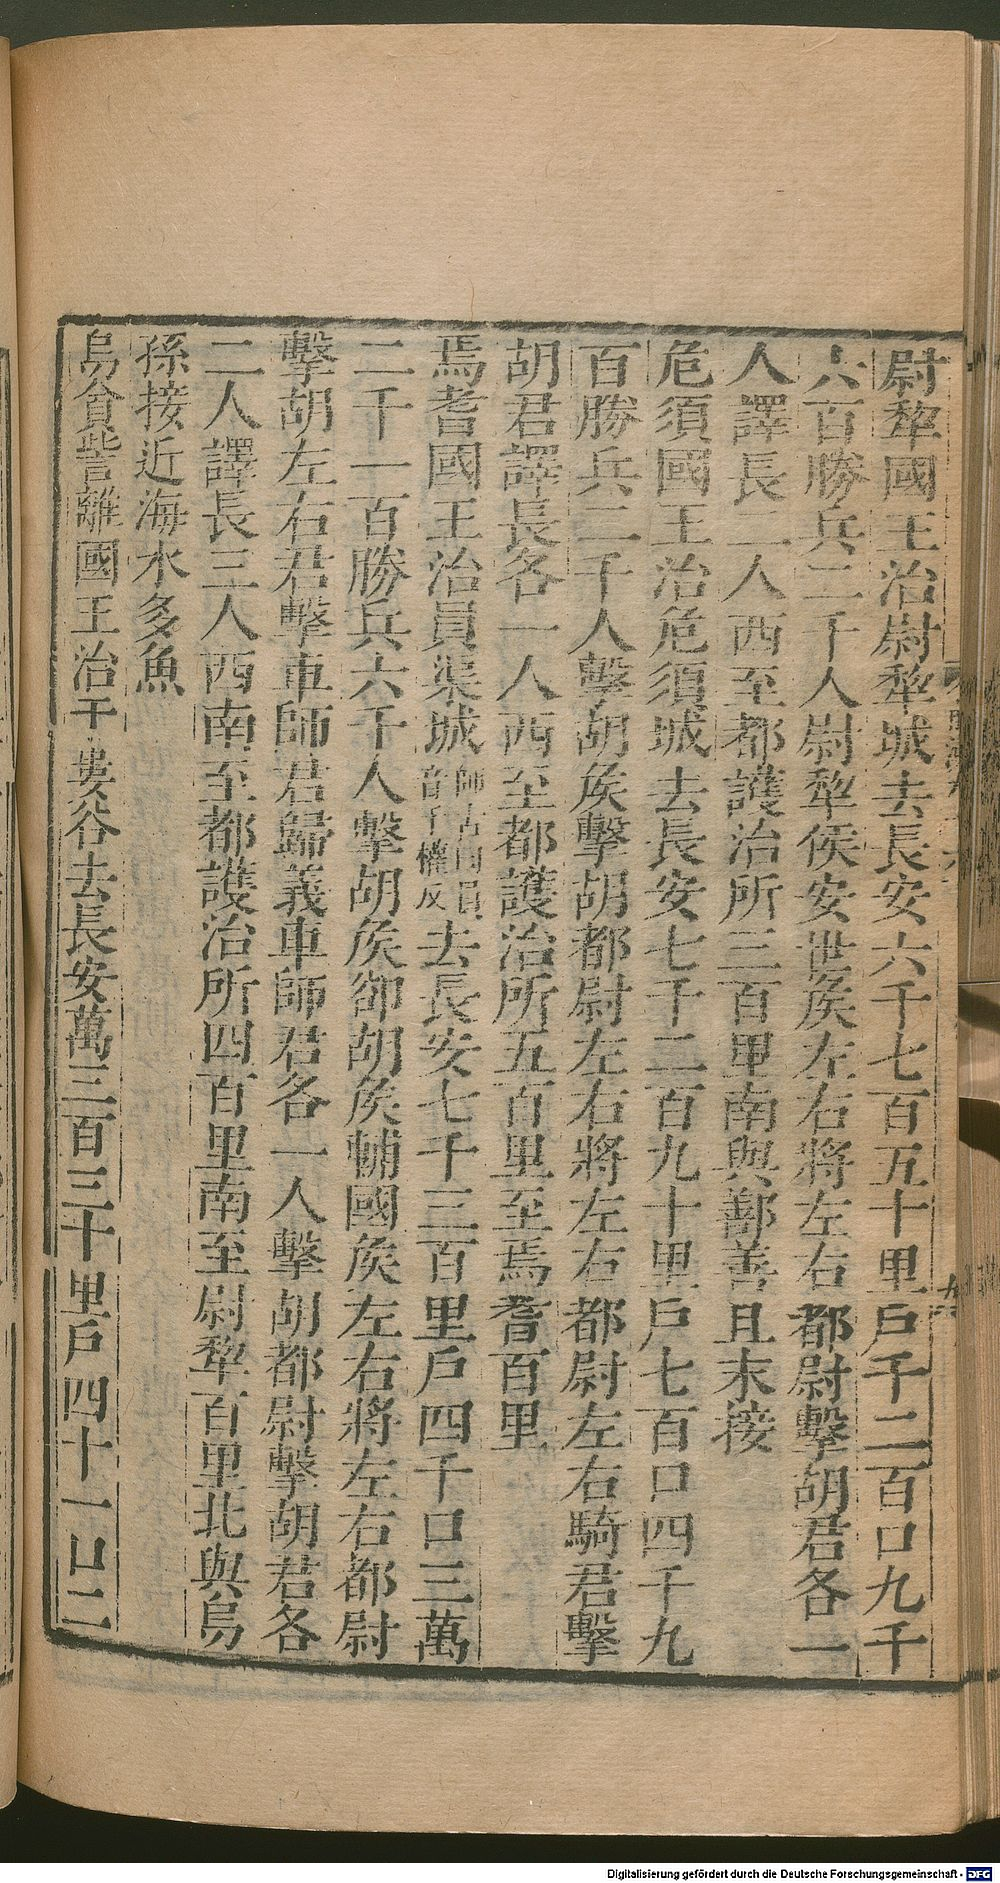 尉犂國王治尉犂城去長安六千七百五十里戶千二百口九千
六百勝兵二千人尉犂侯安世矦左右將左右都尉擊胡君各一
人譯長二人西至都護治所三百里南與鄯善且末接
危須國王治危須城去長安七千二百九十里戶七百口四千九
百勝兵二千人擊胡矦擊胡都尉左右將左右都尉左右騎君擊
胡君譯長各一人西至都護治所五百里至焉耆百里
焉耆國王治員渠城師古曰員音于權反去長安七千三百里戶四千口三萬
二千一百勝兵六千人擊胡矦卻胡矦輔國矦左右將左右都尉
擊胡左右君擊車師君歸義車師君各一人擊胡都尉擊胡君各
二人譯長三人西南至都護治所四百里南至尉犂百里北與烏
孫接近海水多魚
烏貪訾離國王治于婁谷去長安萬三百三十里戶四十一口二
Digitalisierung gefördert durch die Deutsche Forschungsgemeinschaft - DFG